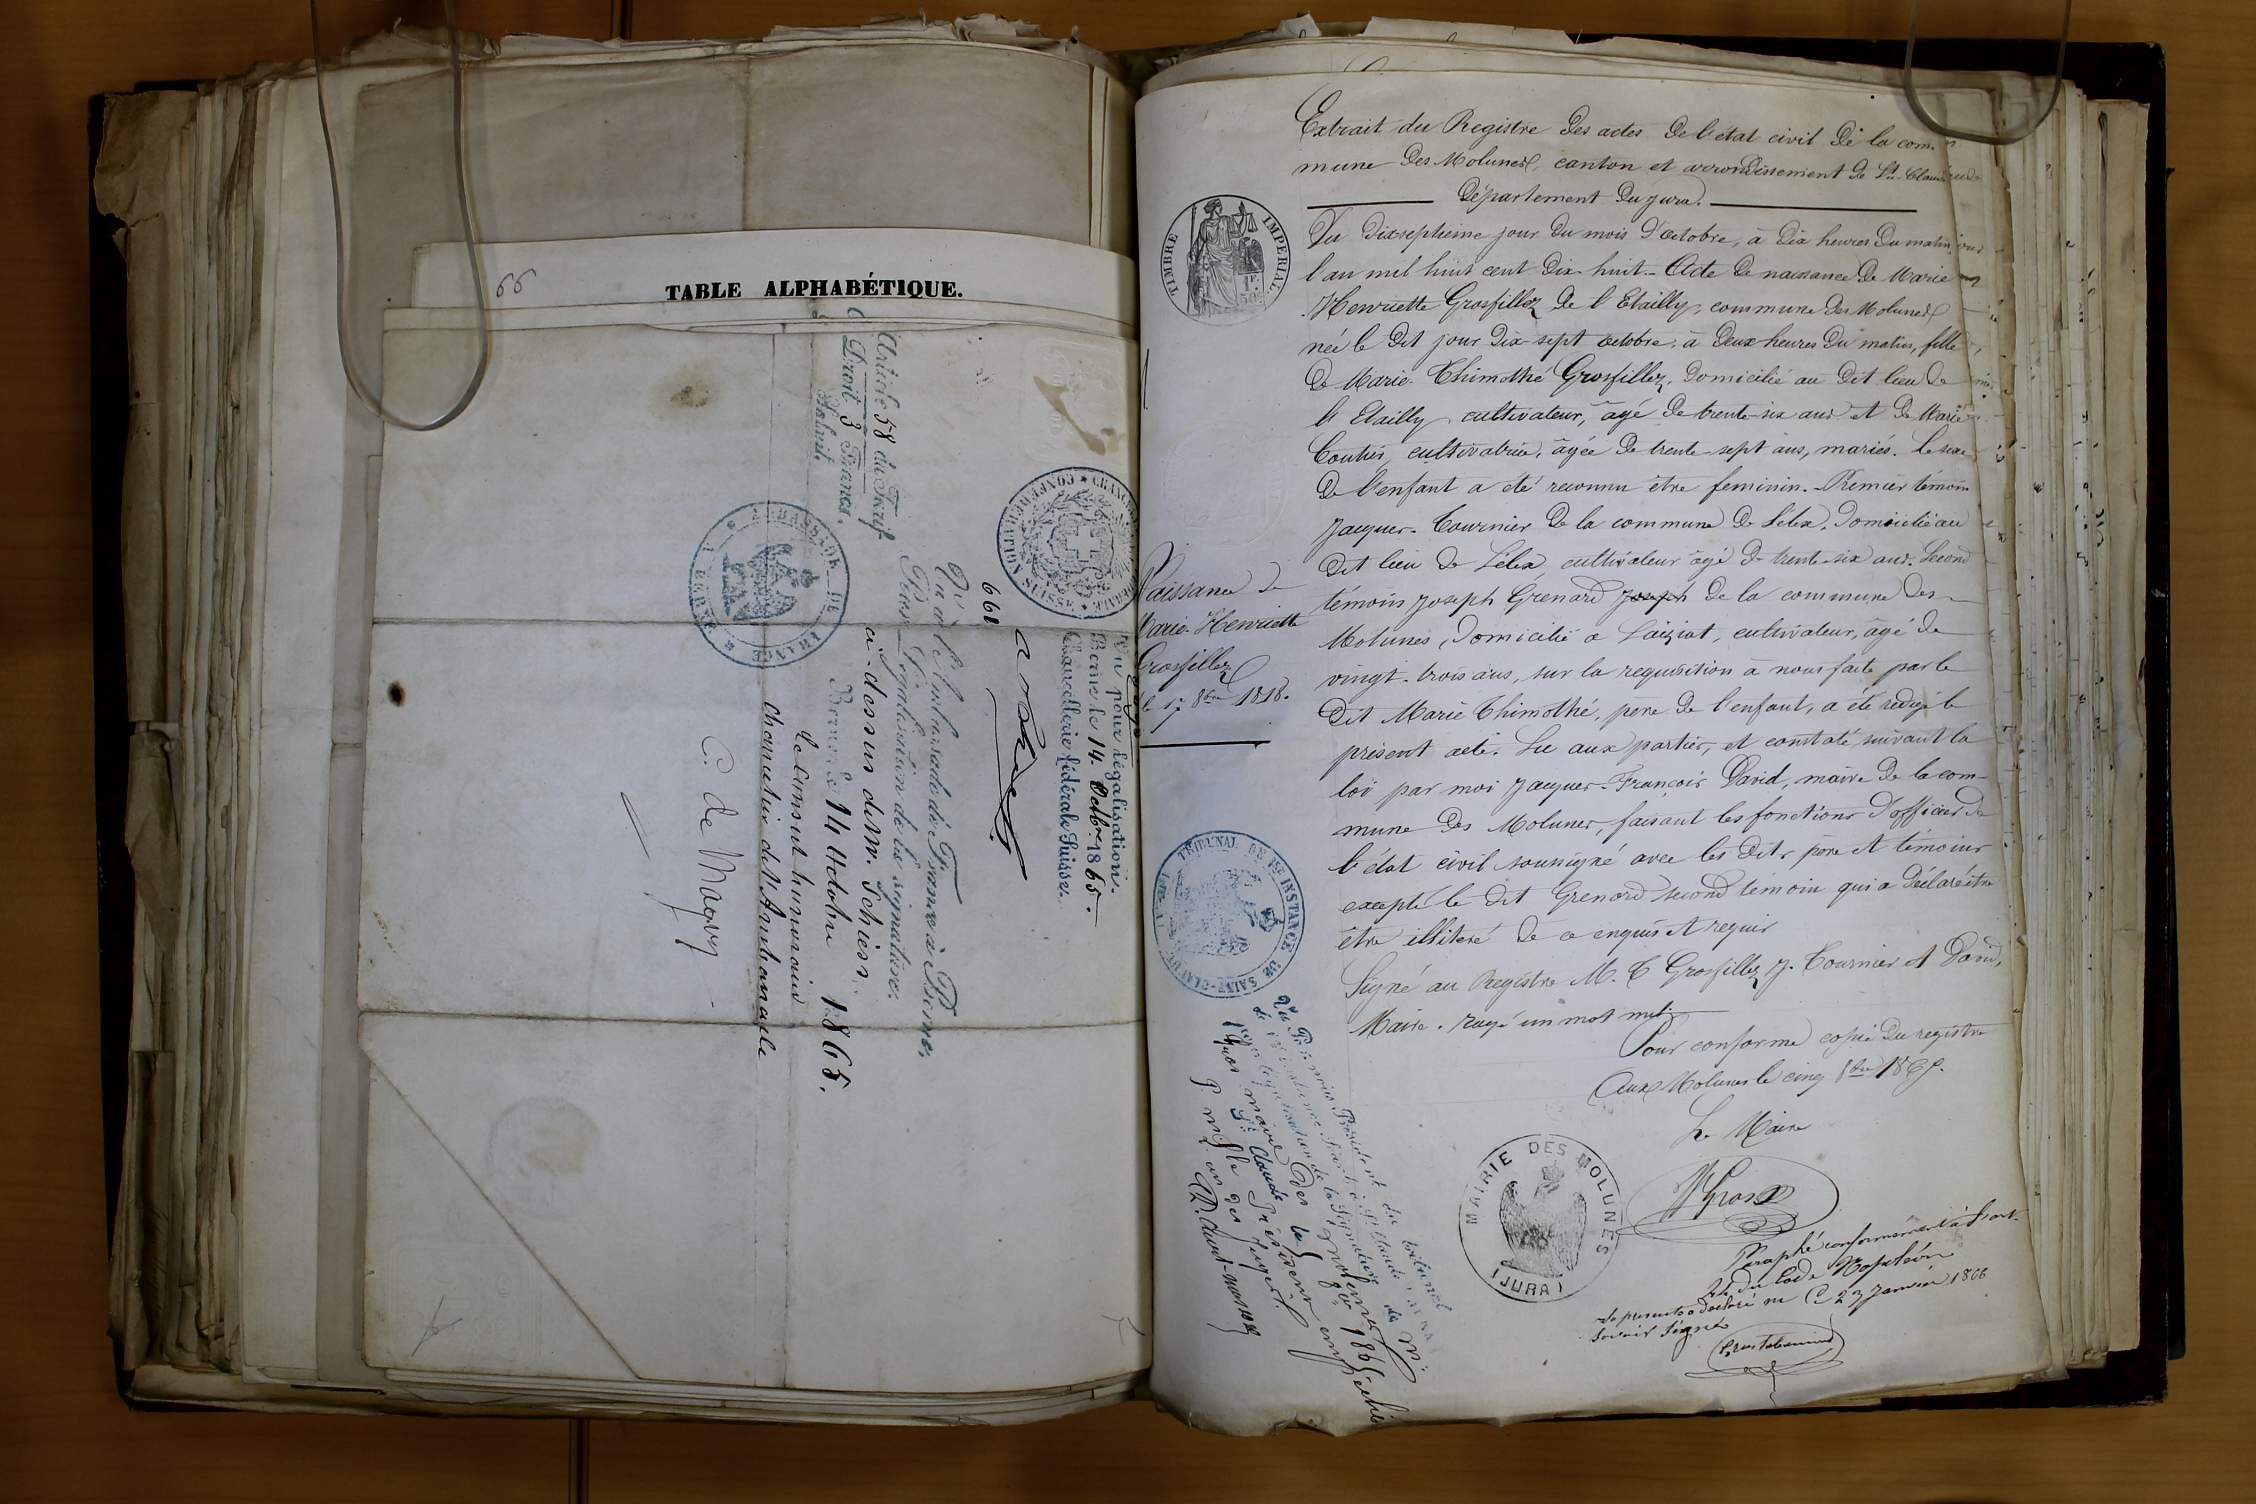 66
TABLE ALPHABÉTIQUE.
Article 58 du Tarif
Droit 3 Francs.
AMBASSADE DE FRANCE
BERNE
CONFÉDÉRATION SUISSE
Vu pour légalisation.
Berne le 14. Octbre 1865.
Chancellerie fédérale Suisse.
199
Vu à l'Ambassade de France à Berne,
Pour Légalisation de la signature
ci-dessus de M. Schiess,
Berne le 14 Octobre 1865.
Le Consul honoraire
Chancelier de l'Ambassade
C. de
Extrait du Registre des actes de l'état civil de la com-
mune des Molunes, canton et arrondissement de St. Claude
Département du Jura.
TIMBRE IMPÉRIAL
1F.
50c
Du dixseptieme jour du mois d'octobre, à dix heures du matin,
l'an mil huit cent dix-huit. Acte de naissance de Marie
Henriette Grosfillez de l'Etailly, commune des Molunes
née le dit jour dix-sept octobre, à deux heures du matin, fille
de Marie Thimothé Grosfillez, domicilié au dit lieu de
l'Etailly cultivateur, âgé de trente-six ans et de Marie
cultivatrice, âgée de trente-sept ans, mariés. Le sexe
de l'enfant a été reconnu être feminin. Premier témoin
Jacques Tournier de la commune de Lélex, domicilié au
dit lieu de Lélex, cultivateur âgé de trente-six ans. Second
témoin Joseph Grenard Joseph de la commune des
Molunes, domicilié a Laiziat, cultivateur, âgé de
vingt-trois ans, sur la requisition à nous faite par le
dit Marie Thimothé, pere de l'enfant, a été redigé le
présent acte. Lu aux parties, et constaté suivant la
loi par moi Jacques-François David, maire de la com-
mune des Molunes, faisant les fonctions d'officier de
l'état civil soussigné avec les dits père et témoins
excepté le dit Grenard second témoin qui a déclaré être
être illiteré de ce enquis et requis
Signé au Registre M. T Grosfillez J. Tournier et David,
Maire. rayé un mot nul.
Pour conforme copie du registre
Aux Molunes le cinq 8bre 1865.
Le Maire
Gros
MAIRIE DES MOLUNES
(JURA)
Naissance de
Marie-Henriette
Grosfillez
le 17 8bre 1818.
TRIBUNAL DE 1ère INSTANCE DE
SAINT-CLAUDE
Vu Par nous Président du tribunal
de 1ère instance Séant à St Claude
pour légalisation de la Signature de Mr
Gros maire des Molunes
St Claude
Paraphé conformement à l'art
44 du Code Napoléon
le 23 Janvier 1866